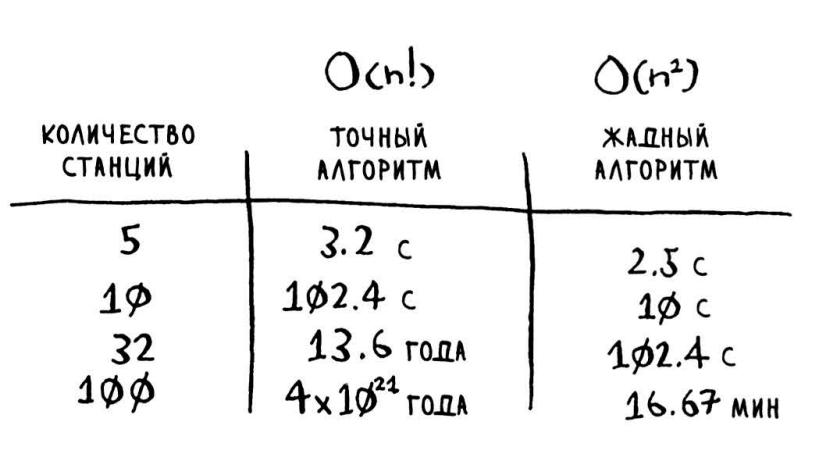 O(n!) O(n²)
КОЛИЧЕСТВО СТАНЦИЙ ТОЧНЫЙ АЛГОРИТМ ЖАДНЫЙ АЛГОРИТМ
5 3.2 с 2.5 с
10 102.4 с 10 с
32 13.6 года 102.4 с
100 4x10²¹ года 16.67 мин